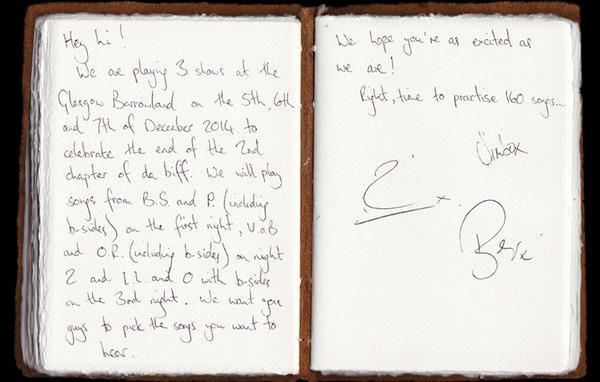 Hey hi!
We are playing 3 shows at the
Glasgow Barrowland on the 5th, 6th
and 7th of December 2014 to
celebrate the end of the 2nd
chapter of da biff. We will play
songs from B.S. and P. (including
b-sides) on the first night, V.o.B
and O.R. (including b-sides) on night
2 and I.L. and O with b-sides
on the 3rd night. We want you
guys to pick the songs you want to
hear.
We hope you're as excited as
we are!
Right, time to practise 160 songs...